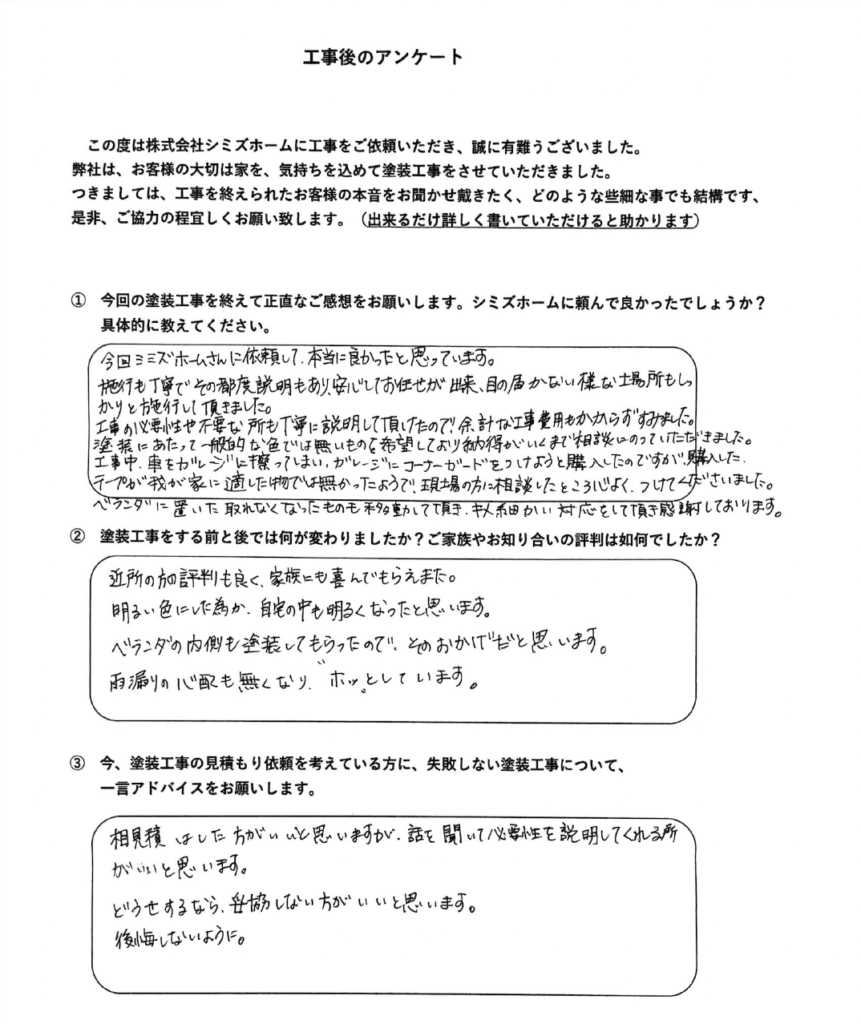 工事後のアンケート
この度は株式会社シミズホームに工事をご依頼いただき、誠に有難うございました。
弊社は、お客様の大切は家を、気持ちを込めて塗装工事をさせていただきました。
つきましては、工事を終えられたお客様の本音をお聞かせ戴きたく、どのような些細な事でも結構です、
是非、ご協力の程宜しくお願い致します。（出来るだけ詳しく書いていただけると助かります）
① 今回の塗装工事を終えて正直なご感想をお願いします。シミズホームに頼んで良かったでしょうか？
具体的に教えてください。
今回ミミズホームさんに依頼して、本当に良かったと思っています。
施行も丁寧でその都度説明もあり、安心してお任せが出来、目の届かない様な場所もしっ
かりと施行して頂きました。
工事の必要性や不要な所も丁寧に説明して頂けたので余計な工事費用もかからずすみました。
塗装にあたって一般的な色では無いものを希望しており納得がいくまで相談にのっていただきました。
工事中、車をガレージに擦ってしまい、ガレージにコーナーガードをつけようと購入したのですが、購入した
テープが我が家に適した物では無かったようで、現場の方に相談したところ心よく、つけてくださいました。
ベランダに置いた取れなくなったものも移動して頂き、キメ細かい対応をして頂き感謝しております。
② 塗装工事をする前と後では何が変わりましたか？ご家族やお知り合いの評判は如何でしたか？
近所の方の評判も良く、家族にも喜んでもらえまた。
明るい色にした為か、自宅の中も明るくなったと思います。
ベランダの内側も塗装してもらったので、そのおかげだと思います。
雨漏りの心配も無くなり、〝ホッ〟としています。
③ 今、塗装工事の見積もり依頼を考えている方に、失敗しない塗装工事について、
一言アドバイスをお願いします。
相見積はした方がいいと思いますが、話を聞いて必要性を説明してくれる所
がいいと思います。
どうせするなら、妥協しない方がいいと思います。
後悔しないように。